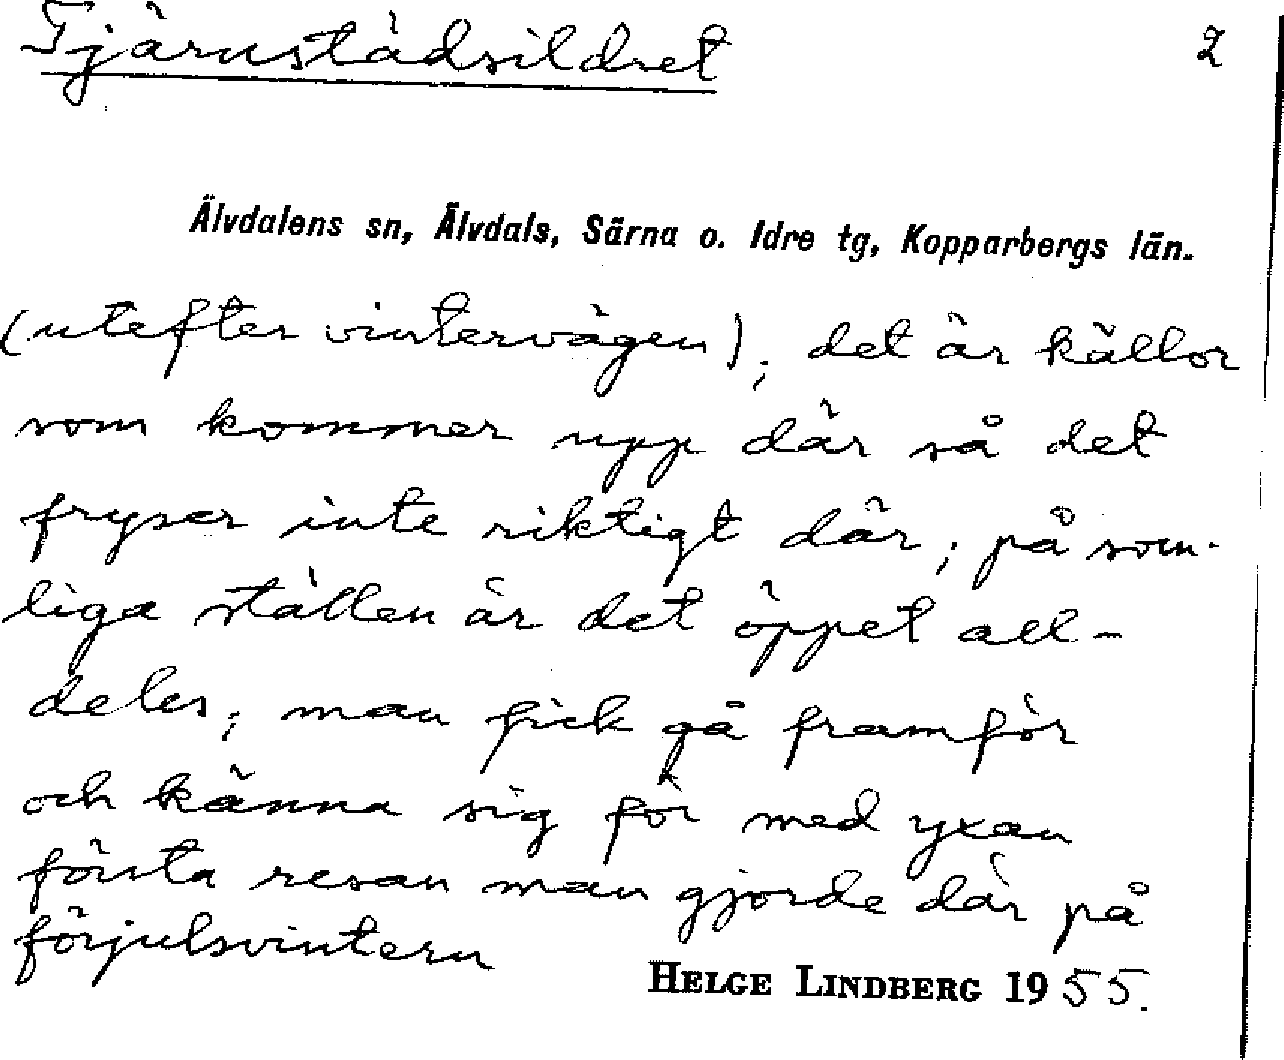 Tjärnstädsildret 2
Älvdalens sn, Älvdals, Särna o. Idre tg, Kopparbergs län.
(utefter vintervägen); det är källor
som kommer upp där så det
fryser inte riktigt där; på som-
liga ställen är det öppet all-
deles; man fick gå framför
och känna sig för med yxan
första resan man gjorde där på
förjulsvintern
HELGE LINDBERG 1955.